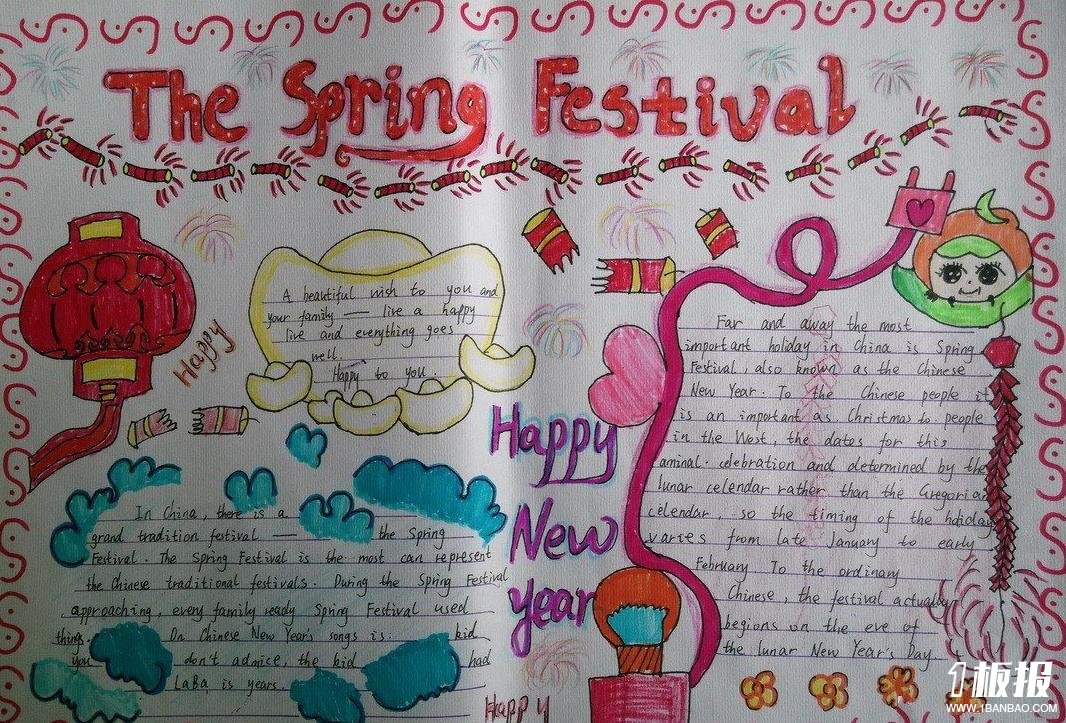 The Spring Festival
A beautiful wish to you and
your family — live a happy
live and everything goes
well.
Happy to you.
Happy
In China, there is a
grand tradition festival — the Spring
Festival. The Spring Festival is the most can represent
the Chinese traditional festivals. During the Spring Festival
approaching, every family ready Spring Festival used
things. On Chinese New Year's songs is: kid
you don't admice, the kid had
LaBa is years.
Happy
New
year
Happy
Far and away the most
important holiday in China is Spring
Festival, also known as the Chinese
New Year. To the Chinese people it
is an important as Christmas to people
in the West, the dates for this
aminal celebration and determined by the
lunar celendar rather than the Gregorian
celendar, so the timing of the hdiolay
varies from late January to early
February To the ordinary
Chinese, the festival actualay
begions on the eve of
the lunar New Year's Day
1板报
WWW.1BANBAO.COM